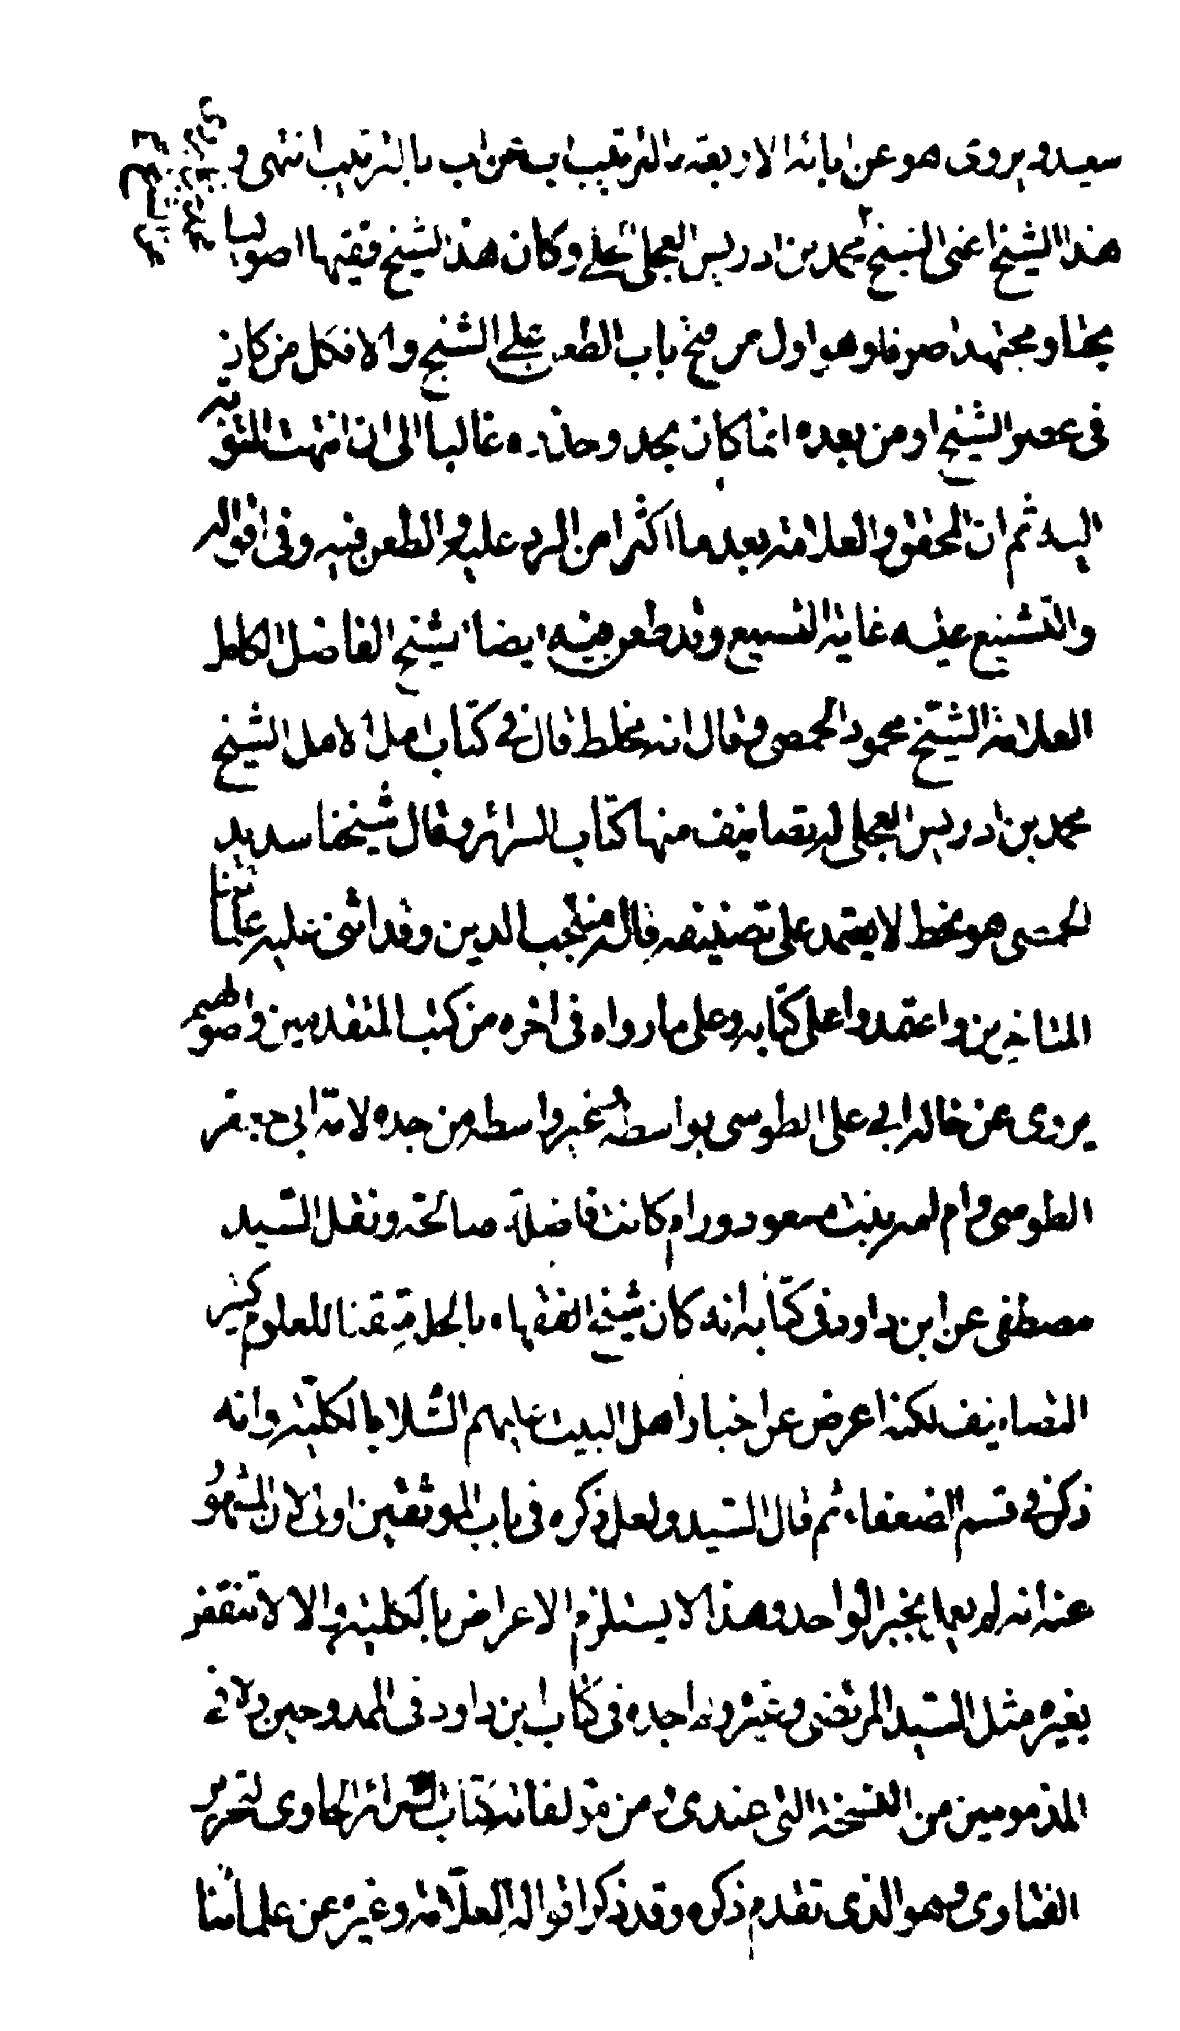 سعيد و يروى هو عن ابائه الاربعه بالترتيب اب عن اب بالترتيب انتهى و
هذا الشيخ اعنى الشيخ محمد بن ادريس العجلى الحلى و كان هذا الشيخ فقيها اصوليا
بحتا و مجتهدا صرفا و هو اول من فتح باب الطعن على الشيخ و الا فكل من كان
فى عصر الشيخ او من بعده انما كان يحذو حذوه غالبا الى ان انتهت النوبة
اليه ثم ان المحقق و العلامة بعد ما اكثرا من الرد عليه و الطعن فيه و فى اقواله
و التشنيع عليه غاية التشنيع و قد طعن فيه ايضا الشيخ الفاضل الكامل
العلامة الشيخ محمود الحمصى و قال انه مخلط قال فى كتاب امل الامل الشيخ
محمد بن ادريس العجلى له تصانيف منها كتاب السرائر و قال شيخنا سديد
الحمصى هو مخلط لا يعتمد على تصنيفه قاله منتجب الدين و قد اثنى عليه علمائنا
المتاخرين و اعتمدوا على كتابه و على ما رواه فى اخره من كتب المتقدمين و اصولهم
يروى عن خاله ابى على الطوسى بواسطة و غير واسطه من جده لامه ابى جعفر
الطوسى و ام امه بنت مسعود ورام كانت فاضلة صالحه و نقل السيد
مصطفى عن ابن داود فى كتابه انه كان شيخ الفقهاء بالحلة متقنا للعلوم كثير
التصانيف لكنه اعرض عن اخبار اهل البيت عليهم السلام بالكلية و انه
ذكره فى قسم الضعفاء ثم قال السيد و لعل ذكره فى باب الموثقين اولى لان المشهور
عنه انه لم يعمل بخبر الواحد و هذا لا يستلزم الاعراض بالكلية و الا لانتقض
بغيره مثل السيد المرتضى و غيره و لم اجده فى كتاب ابن داود فى الممدوحين و لا فى
المذمومين من النسخة التى عندى من مؤلفاته كتاب السرائر الحاوى لتحرير
الفتاوى و هو الذى تقدم ذكره و قد ذكر اقواله العلامة و غيره عن علمائنا